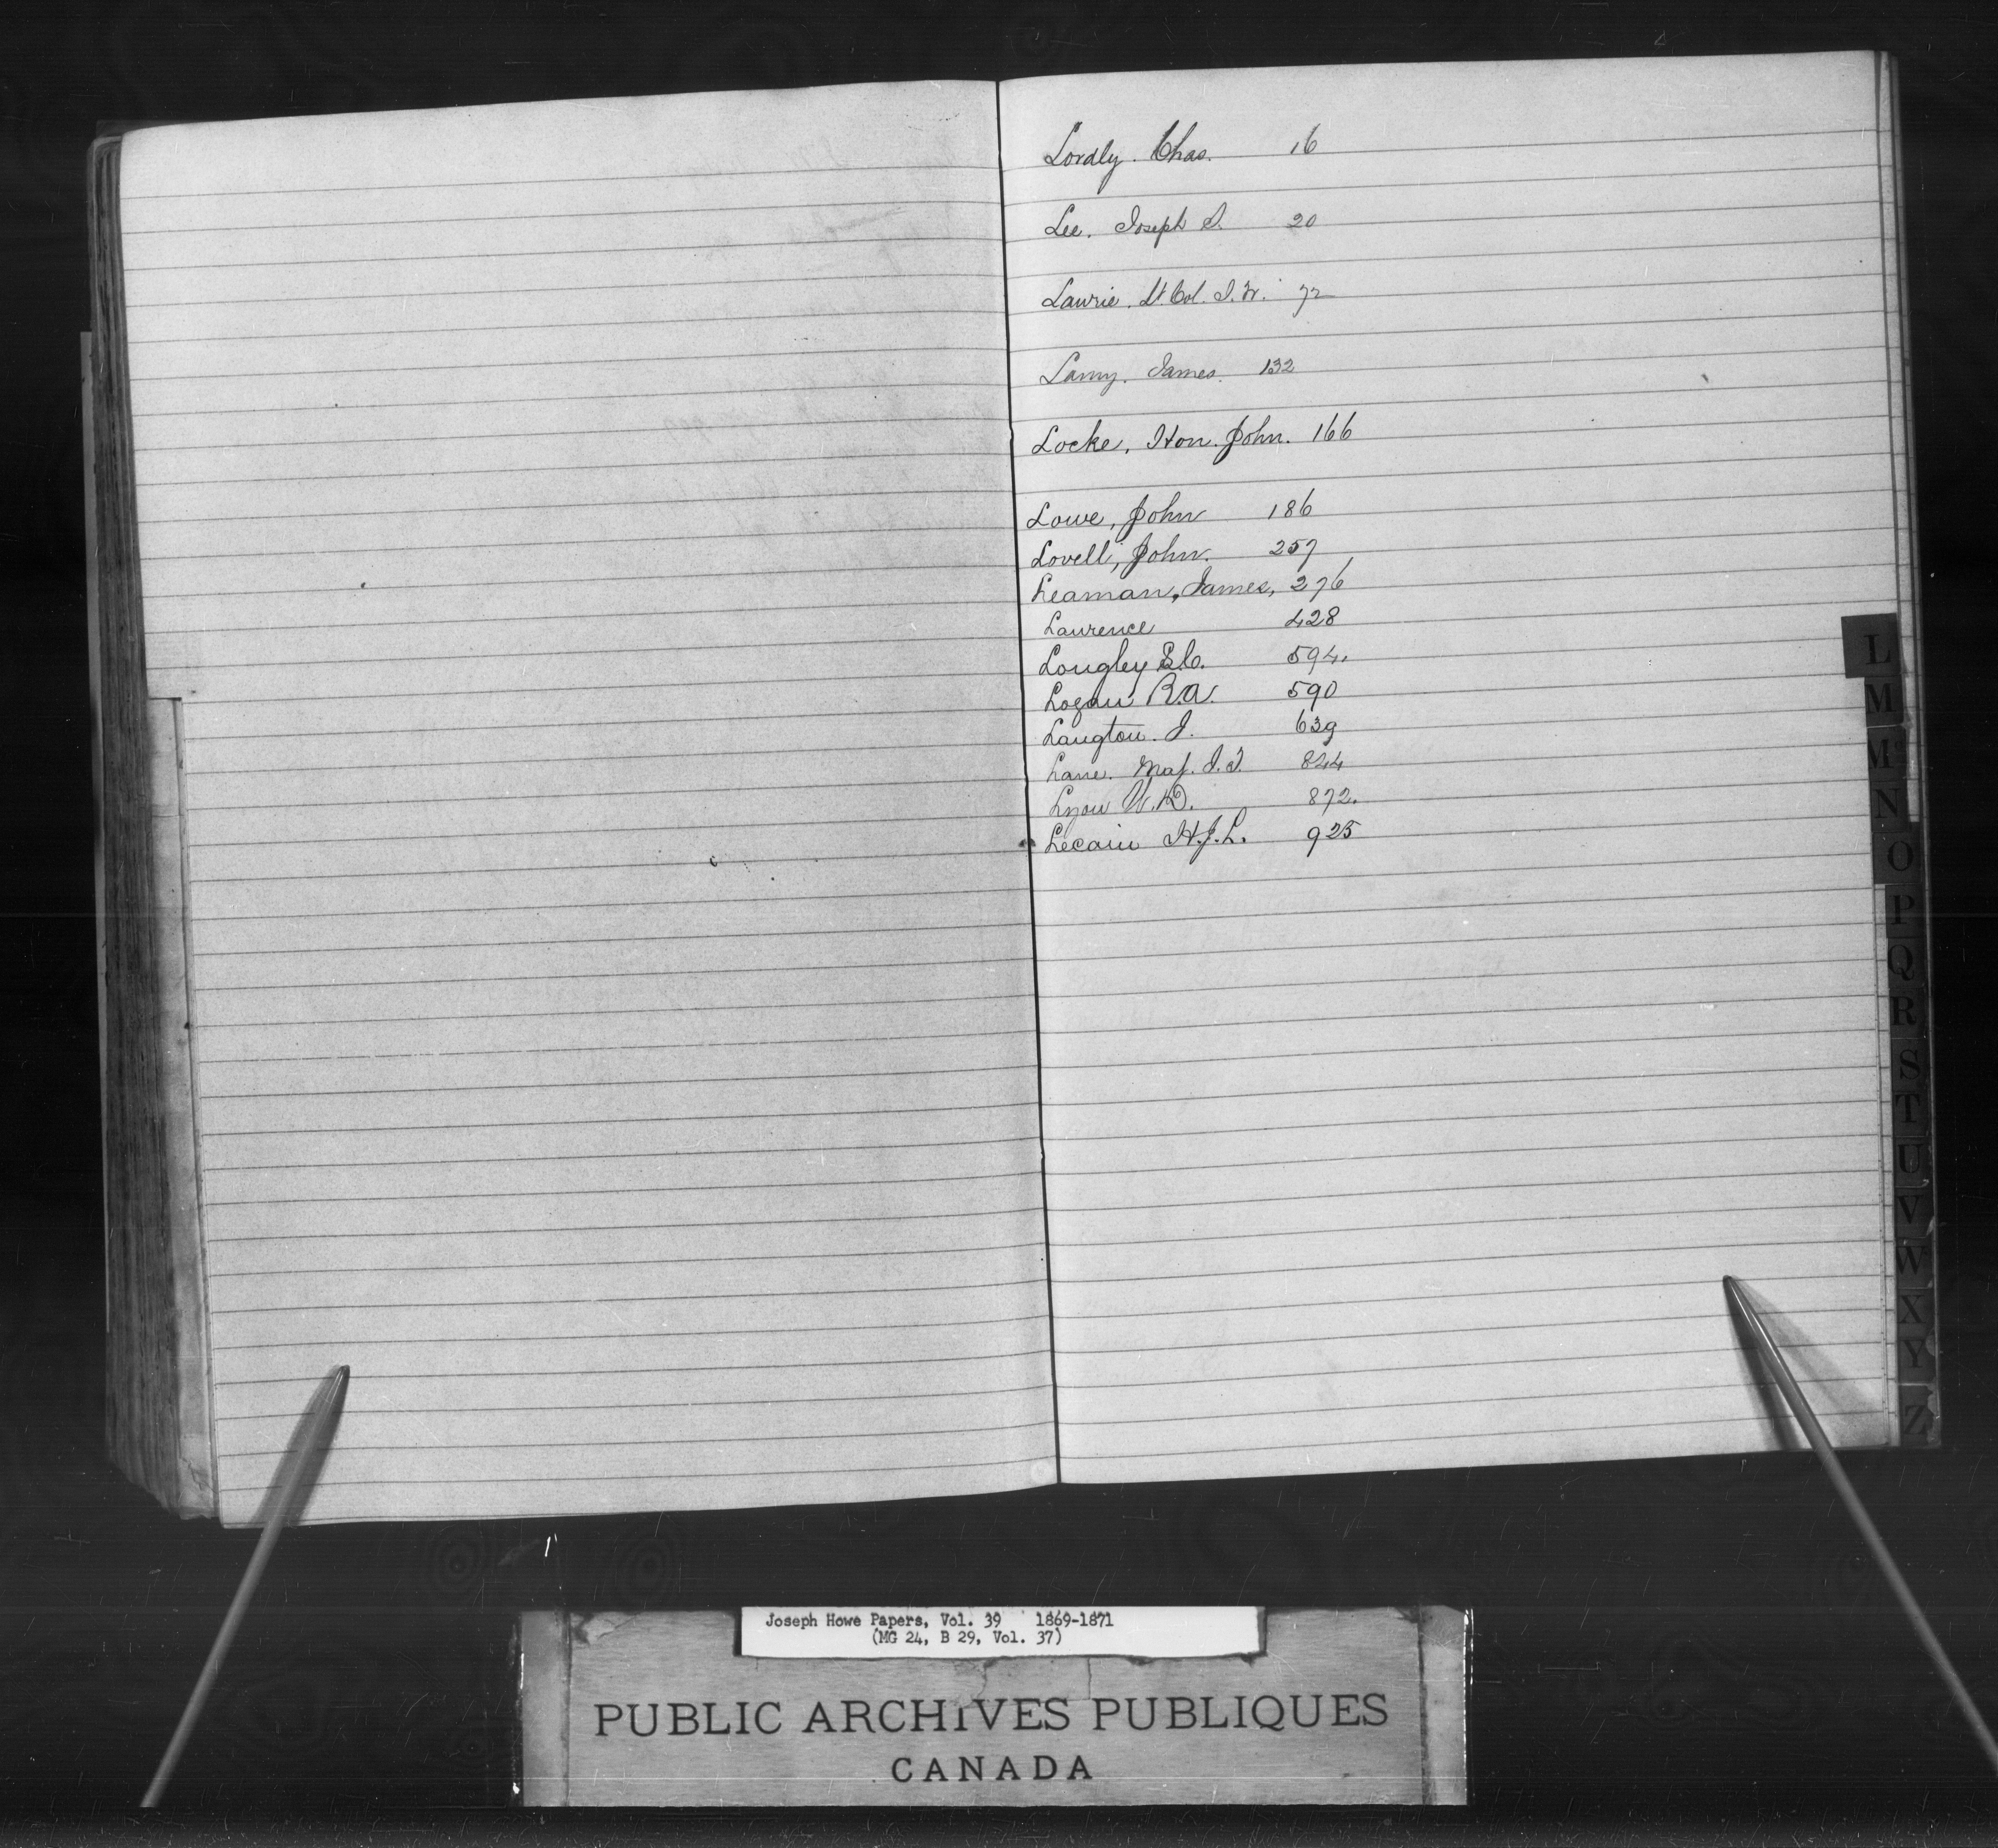 Lordly. Chas. 16
Lee. Joseph S. 20
Laurie. Lt. Col. J. W. 72
Lamy. James. 132
Locke, Hon. John. 166
Lowe, John 186
Lovell, John. 257
Leaman, James, 276
Laurence 428
Longley E.C. 594.
Logan R.A. 590
Langton. J. 639
Lane. Maj. J. J. 844
Lyon W. D. 872.
Lecain H.J.L. 925
L
M
Mc
N
O
P
Q
R
S
T
U
V
W
X
Y
Z
Joseph Howe Papers, Vol. 39 1869-1871
(MG 24, B 29, Vol. 37)
PUBLIC ARCHIVES PUBLIQUES
CANADA